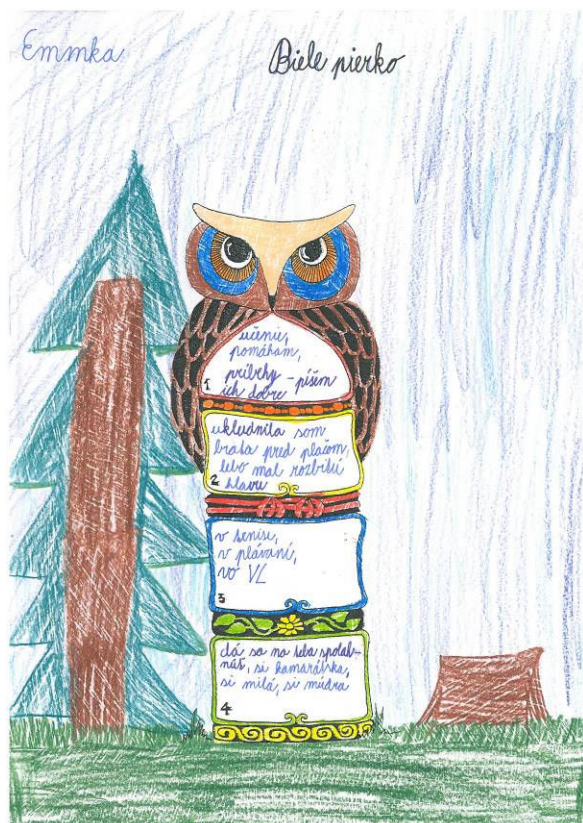 Emmka
Biele pierko
učenie,
pomáham,
príbehy - píšem
ich dobre
1
ukludnila som
brata pred plačom,
lebo mal rozbitú
hlavu
2
v tenise,
v plávaní,
vo VL
3
dá sa na teba spolah-
núť, si kamarátska,
si milá, si múdra
4